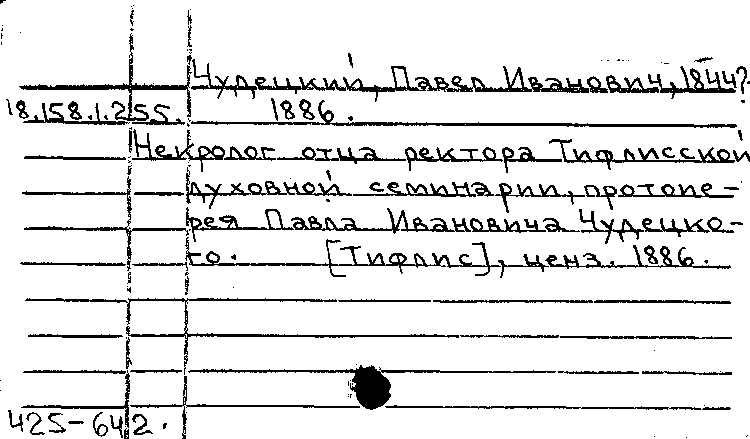 Чудецкий, Павел Иванович, 1844?
18.158.1.255. 1886.
Некролог отца ректора Тифлисской
духовной семинарии, протоие-
рея Павла Ивановича Чудецко-
го. [Тифлис], ценз. 1886.
425-642.